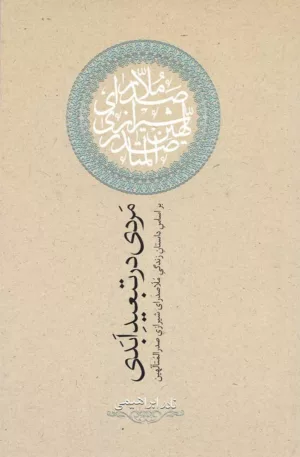 ملاصدرای شیرازی صدرالمتألهین
مَردی در تبعیدِ اَبَدی
بر اساس داستان زندگی ملاصدرای شیرازی صدرالمتألهین
نادر ابراهیمی